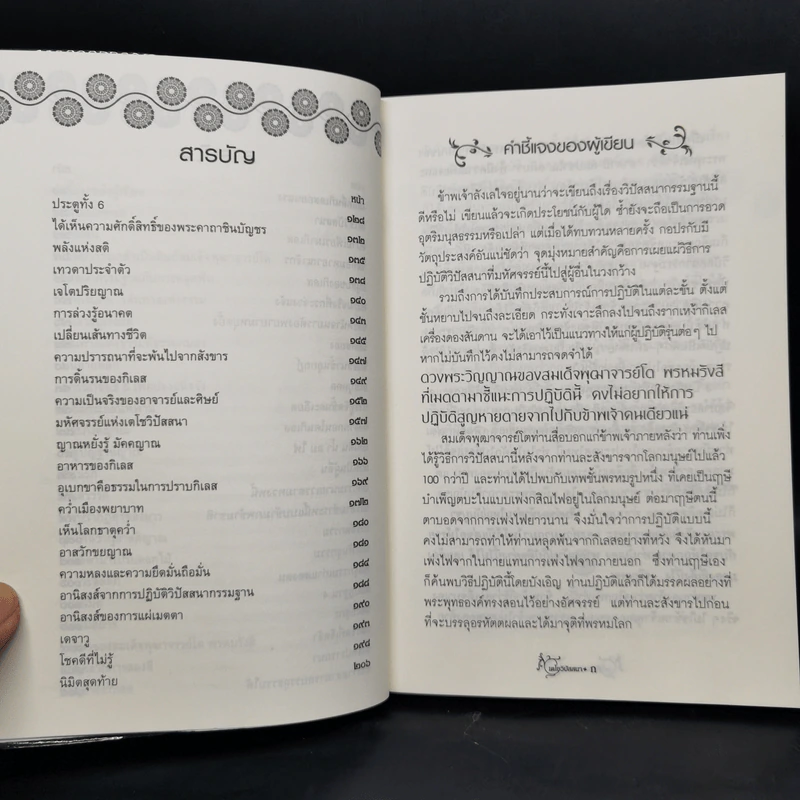 สารบัญ
หน้า
ประตูทั้ง 6 ๑๒๘
ได้เห็นความศักดิ์สิทธิ์ของพระคาถาชินบัญชร ๑๓๒
พลังแห่งสติ ๑๓๕
เทวดาประจำตัว
เจโตปริยญาณ ๑๔๐
การล่วงรู้อนาคต ๑๔๓
เปลี่ยนเส้นทางชีวิต ๑๔๕
ความปรารถนาที่จะพ้นไปจากสังขาร ๑๔๗
การดิ้นรนของกิเลส ๑๔๙
ความเป็นจริงของอาจารย์และศิษย์ ๑๕๒
มหัศจรรย์แห่งเตโชวิปัสสนา ๑๕๗
ญาณหยั่งรู้ มัคคญาณ ๑๖๒
อาหารของกิเลส ๑๖๖
อุเบกขาคือธรรมในการปราบกิเลส ๑๖๙
คว่ำเมืองพยาบาท ๑๗๒
เห็นโลกธาตุคว่ำ ๑๘๐
อาสวักขยญาณ ๑๘๑
ความหลงและความยึดมั่นถือมั่น ๑๘๔
อานิสงส์จากการปฏิบัติวิปัสสนากรรมฐาน ๑๘๘
อานิสงส์ของการแผ่เมตตา ๑๙๐
เดจาวู ๑๙๓
โชคดีที่ไม่รู้ ๑๙๘
นิมิตสุดท้าย ๒๐๖
คำชี้แจงของผู้เขียน
ข้าพเจ้าลังเลใจอยู่นานว่าจะเขียนถึงเรื่องวิปัสสนากรรมฐานนี้
ดีหรือไม่ เขียนแล้วจะเกิดประโยชน์กับผู้ใด ซ้ำยังจะถือเป็นการอวด
อุตริมนุสธรรมหรือเปล่า แต่เมื่อได้ทบทวนหลายครั้ง กอปรกับมี
วัตถุประสงค์อันแน่ชัดว่า จุดมุ่งหมายสำคัญคือการเผยแผ่วิธีการ
ปฏิบัติวิปัสสนาที่มหัศจรรย์นี้ไปสู่ผู้อื่นในวงกว้าง
รวมถึงการได้บันทึกประสบการณ์การปฏิบัติในแต่ละขั้น ตั้งแต่
ขั้นหยาบไปจนถึงละเอียด กระทั่งเจาะลึกลงไปจนถึงรากเหง้ากิเลส
เครื่องดองสันดาน จะได้เอาไว้เป็นแนวทางให้แก่ผู้ปฏิบัติรุ่นต่อๆ ไป
หากไม่บันทึกไว้คงไม่สามารถจดจำได้
ดวงพระวิญญาณของสมเด็จพุฒาจารย์โต พรหมรังสี
ที่เมตตามาชี้แนะการปฏิบัตินี้ คงไม่อยากให้การ
ปฏิบัติสูญหายตายจากไปกับข้าพเจ้าคนเดียวแน่
สมเด็จพุฒาจารย์โตท่านสื่อบอกแก่ข้าพเจ้าภายหลังว่า ท่านเพิ่ง
ได้รู้วิธีการวิปัสสนานี้หลังจากท่านละสังขารจากโลกมนุษย์ไปแล้ว
100 กว่าปี และท่านได้ไปพบกับเทพชั้นพรหมรูปหนึ่ง ที่เคยเป็นฤๅษี
บำเพ็ญตบะในแบบเพ่งกสิณไฟอยู่ในโลกมนุษย์ ต่อมาฤๅษีตนนี้
ตาบอดจากการเพ่งไฟยาวนาน จึงมั่นใจว่าการปฏิบัติแบบนี้
คงไม่สามารถทำให้ท่านหลุดพ้นจากกิเลสอย่างที่หวัง จึงได้หันมา
เพ่งไฟจากในกายแทนการเพ่งไฟจากภายนอก ซึ่งท่านฤๅษีเอง
ก็ค้นพบวิธีปฏิบัตินี้โดยบังเอิญ ท่านปฏิบัติแล้วก็ได้มรรคผลอย่างที่
พระพุทธองค์ทรงสอนไว้อย่างอัศจรรย์ แต่ท่านละสังขารไปก่อน
ที่จะบรรลุอรหัตตผลและได้มาจุติที่พรหมโลก
เตโชวิปัสสนา • ก